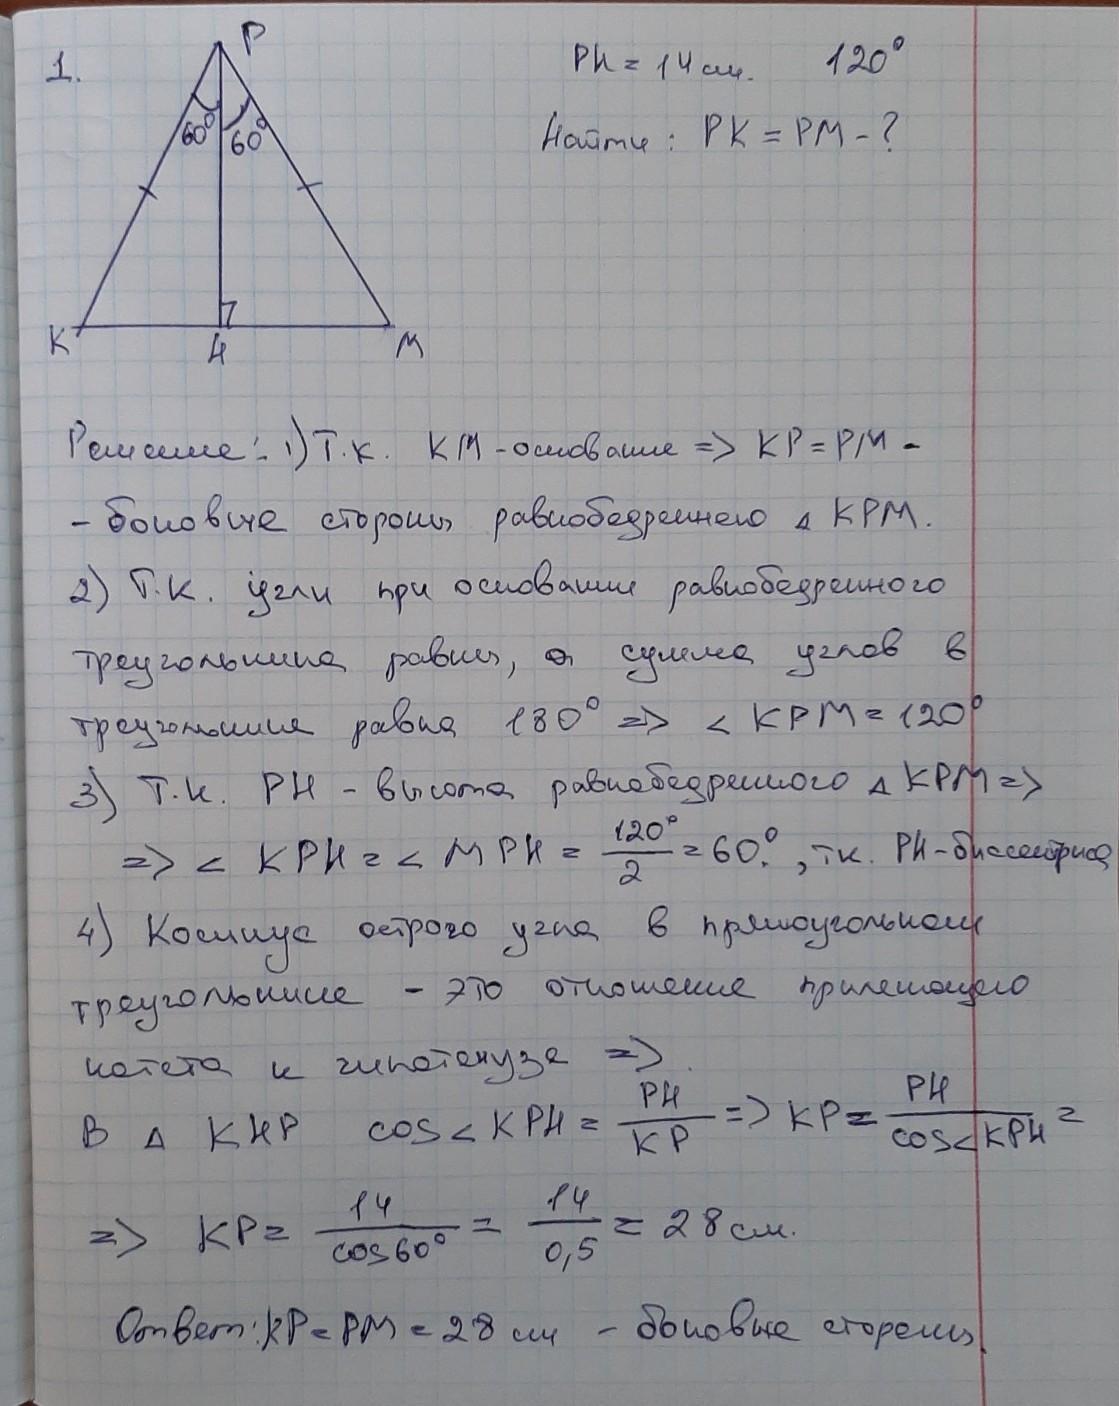 1.
P
60°
60°
K
H
M
PH = 14 см. 120°
Найти: PK = PM - ?
Решение: 1) Т.к. KM - основание => KP = PM -
- боковые стороны равнобедренного △ KPM.
2) Т.к. углы при основании равнобедренного
треугольника равны, а сумма углов в
треугольнике равна 180° => < KPM = 120°
3) Т.к. PH - высота равнобедренного △ KPM =>
=> < KPH = < MPH = 120°/2 = 60°, т.к. PH - биссектриса
4) Косинус острого угла в прямоугольном
треугольнике - это отношение прилежащего
катета к гипотенузе =>
В △ KHP cos < KPH = PH/KP => KP = PH/cos < KPH =
=> KP = 14/cos60° = 14/0,5 = 28 см.
Ответ: KP = PM = 28 см - боковые стороны